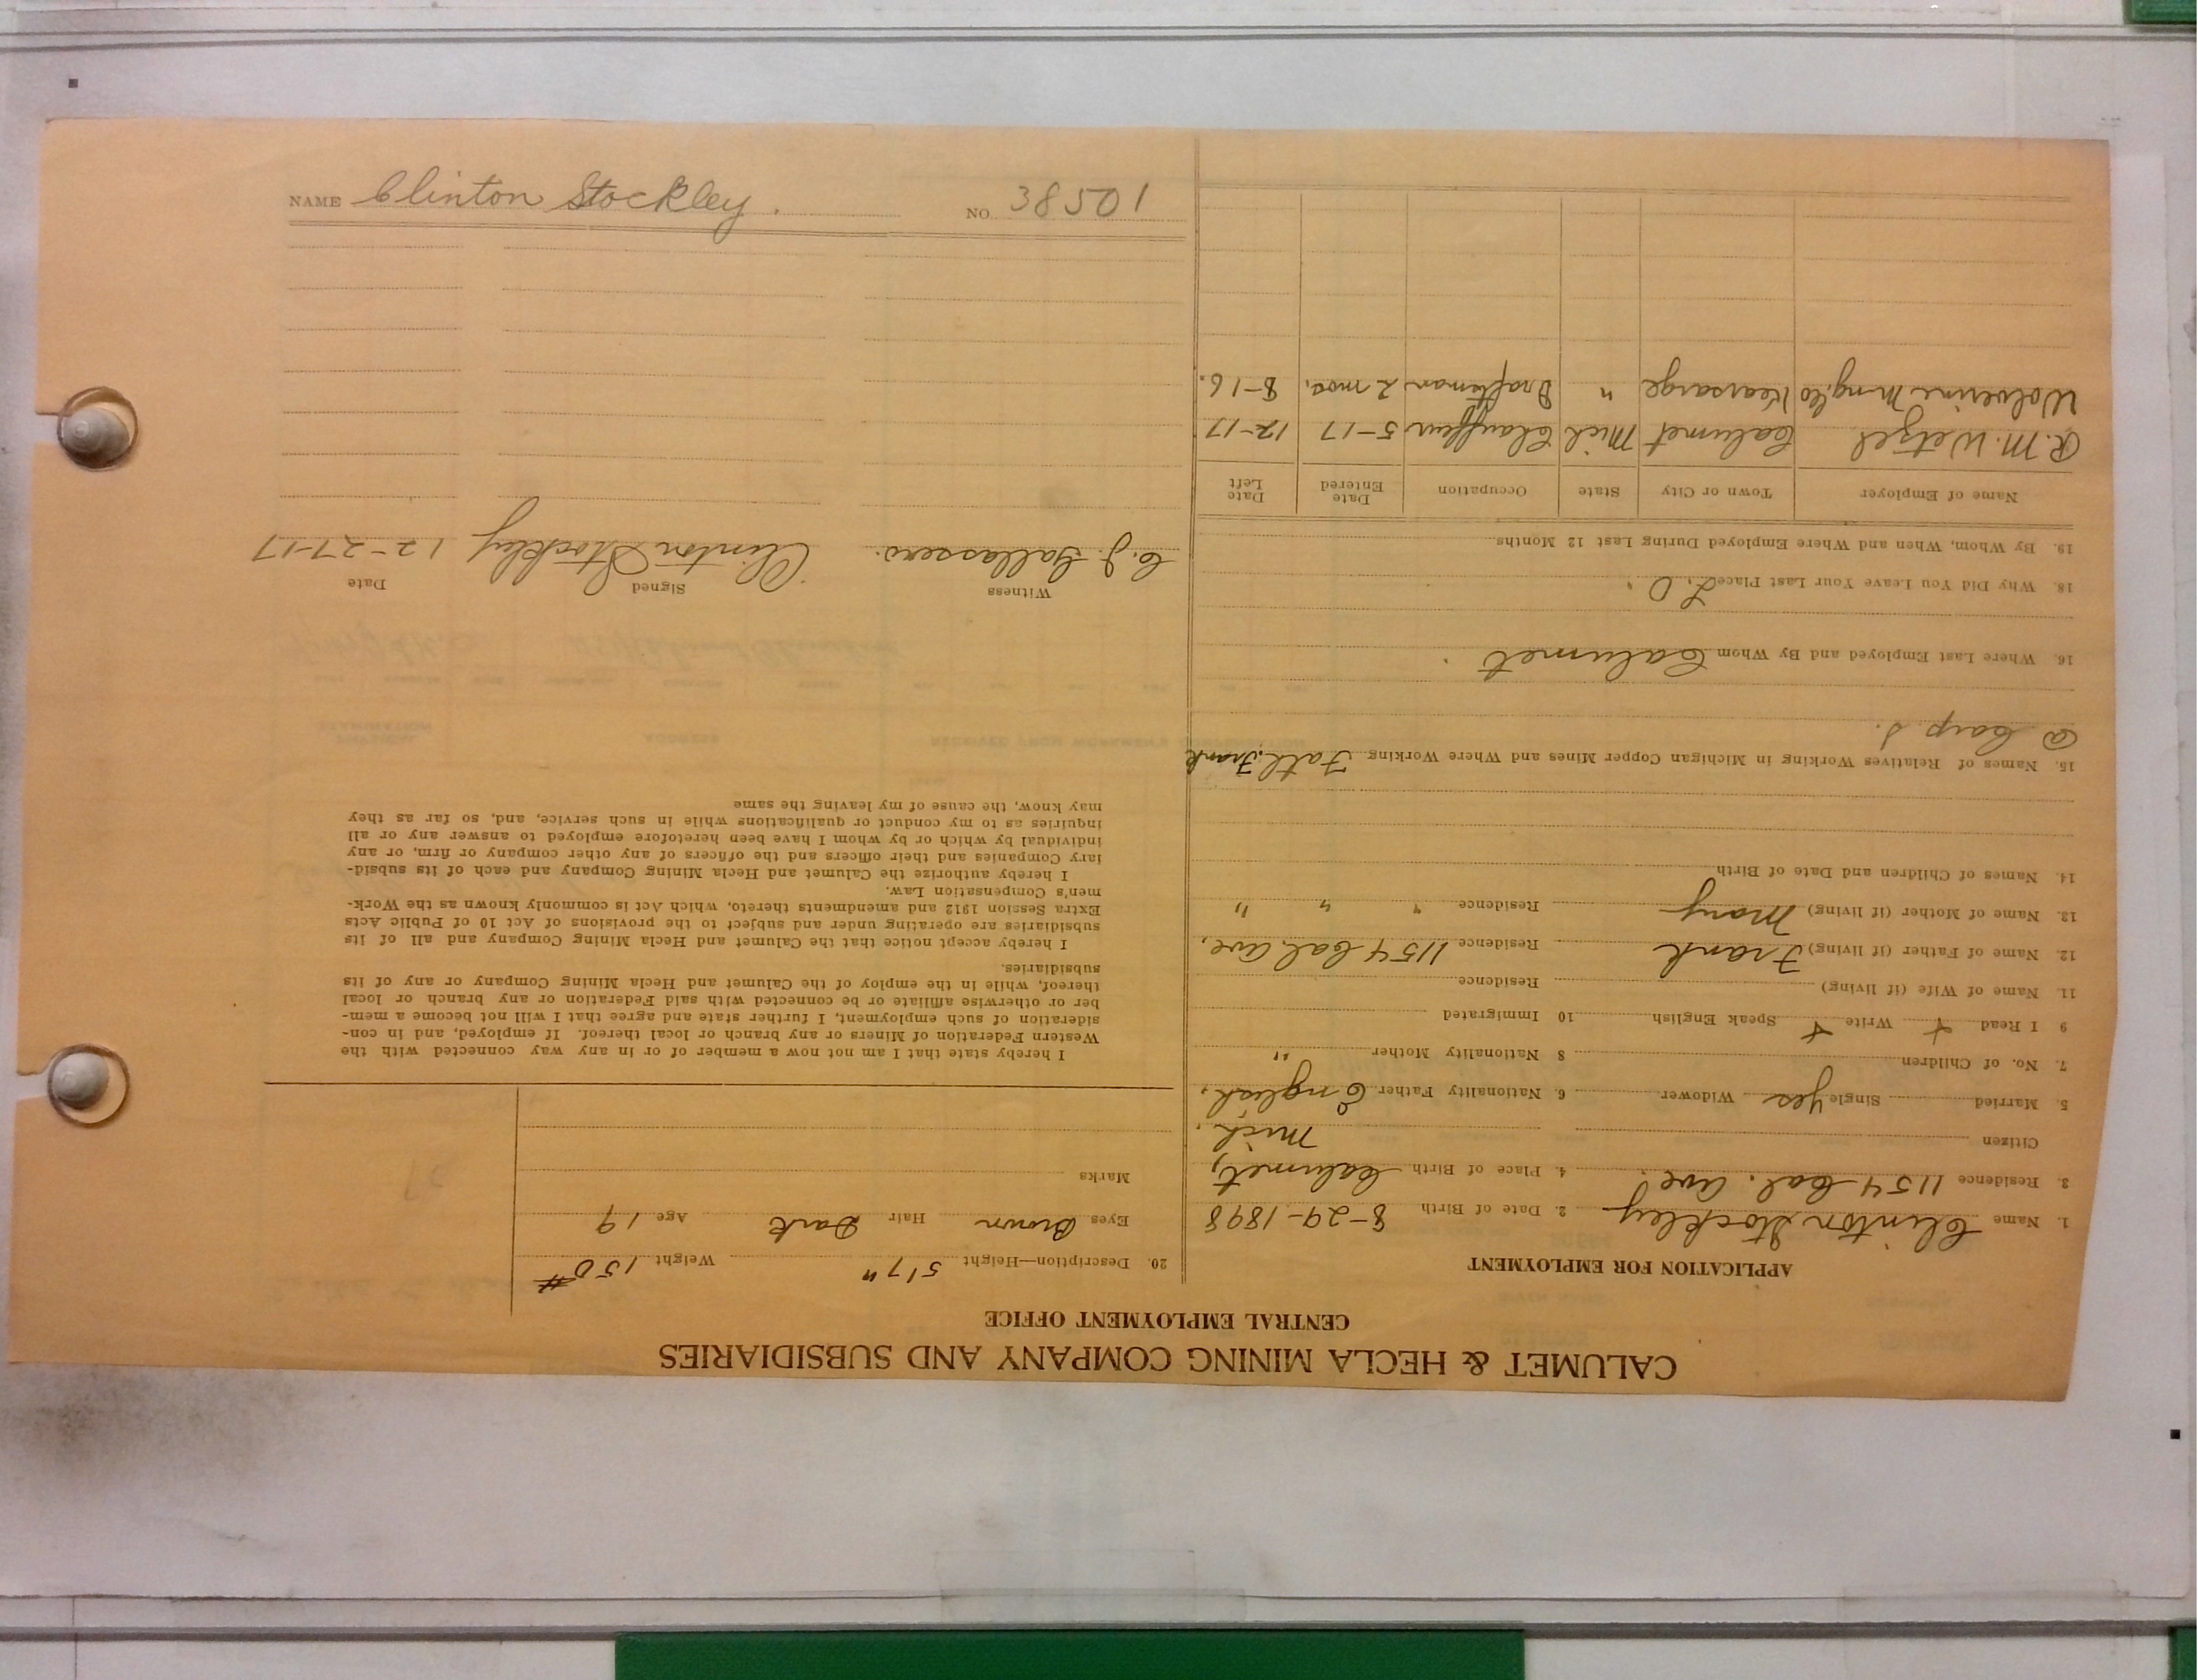 CALUMET & HECLA MINING COMPANY AND SUBSIDIARIES
CENTRAL EMPLOYMENT OFFICE
APPLICATION FOR EMPLOYMENT
1. Name Clinton Stockley 2. Date of Birth 8-29-1898
3. Residence 1154 Cal. Ave. 4. Place of Birth Calumet,
Citizen Mich.
5. Married Single Yes Widower 6. Nationality Father English,
7. No. of Children 8 Nationality Mother "
9 I Read Write Speak English 10 Immigrated
11. Name of Wife (if living) Residence
12. Name of Father (if living) Frank Residence 1154 Cal. Ave,
13. Name of Mother (if living) Mary Residence " " "
14. Names of Children and Date of Birth
15. Names of Relatives Working in Michigan Copper Mines and Where Working Fath. Frank
@ Carp. S.
16. Where Last Employed and By Whom Calumet.
18. Why Did You Leave Your Last Place L.O.
19. By Whom, When and Where Employed During Last 12 Months
Name of Employer Town or City State Occupation Date Entered Date Left
R. M. Wetzel Calumet Mich Chauffeur 5-17 12-17
Wolverine Mng. Co Kearsarge " Draftsman 2 mos. 8-16.
20. Description—Height 5'7" Weight 150#
Eyes Brown Hair Dark Age 19
Marks
I hereby state that I am not now a member of or in any way connected with the
Western Federation of Miners or any branch or local thereof. If employed, and in con-
sideration of such employment, I further state and agree that I will not become a mem-
ber or otherwise affiliate or be connected with said Federation or any branch or local
thereof, while in the employ of the Calumet and Hecla Mining Company or any of its
subsidiaries.
I hereby accept notice that the Calumet and Hecla Mining Company and all of its
subsidiaries are operating under and subject to the provisions of Act 10 of Public Acts
Extra Session 1912 and amendments thereto, which Act is commonly known as the Work-
men's Compensation Law.
I hereby authorize the Calumet and Hecla Mining Company and each of its subsid-
iary Companies and their officers and the officers of any other company or firm, or any
individual by which or by whom I have been heretofore employed to answer any or all
inquiries as to my conduct or qualifications while in such service, and, so far as they
may know, the cause of my leaving the same
Witness Signed Date
C. J. Clinton Stockley 12-27-17
NAME Clinton Stockley. NO. 38501